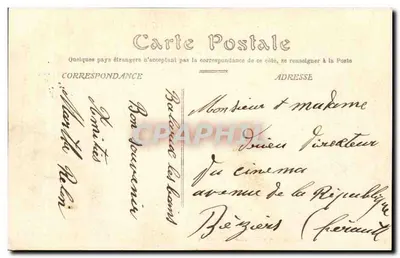 Carte Postale
Quelques pays étrangers n'acceptant pas la correspondance de ce côté, se renseigner à la Poste
CORRESPONDANCE
ADRESSE
Balaruc les bains
Bon souvenir
Amitiés
Monsieur & madame
Directeur
du cinema
avenue de la République
Béziers (Hérault)